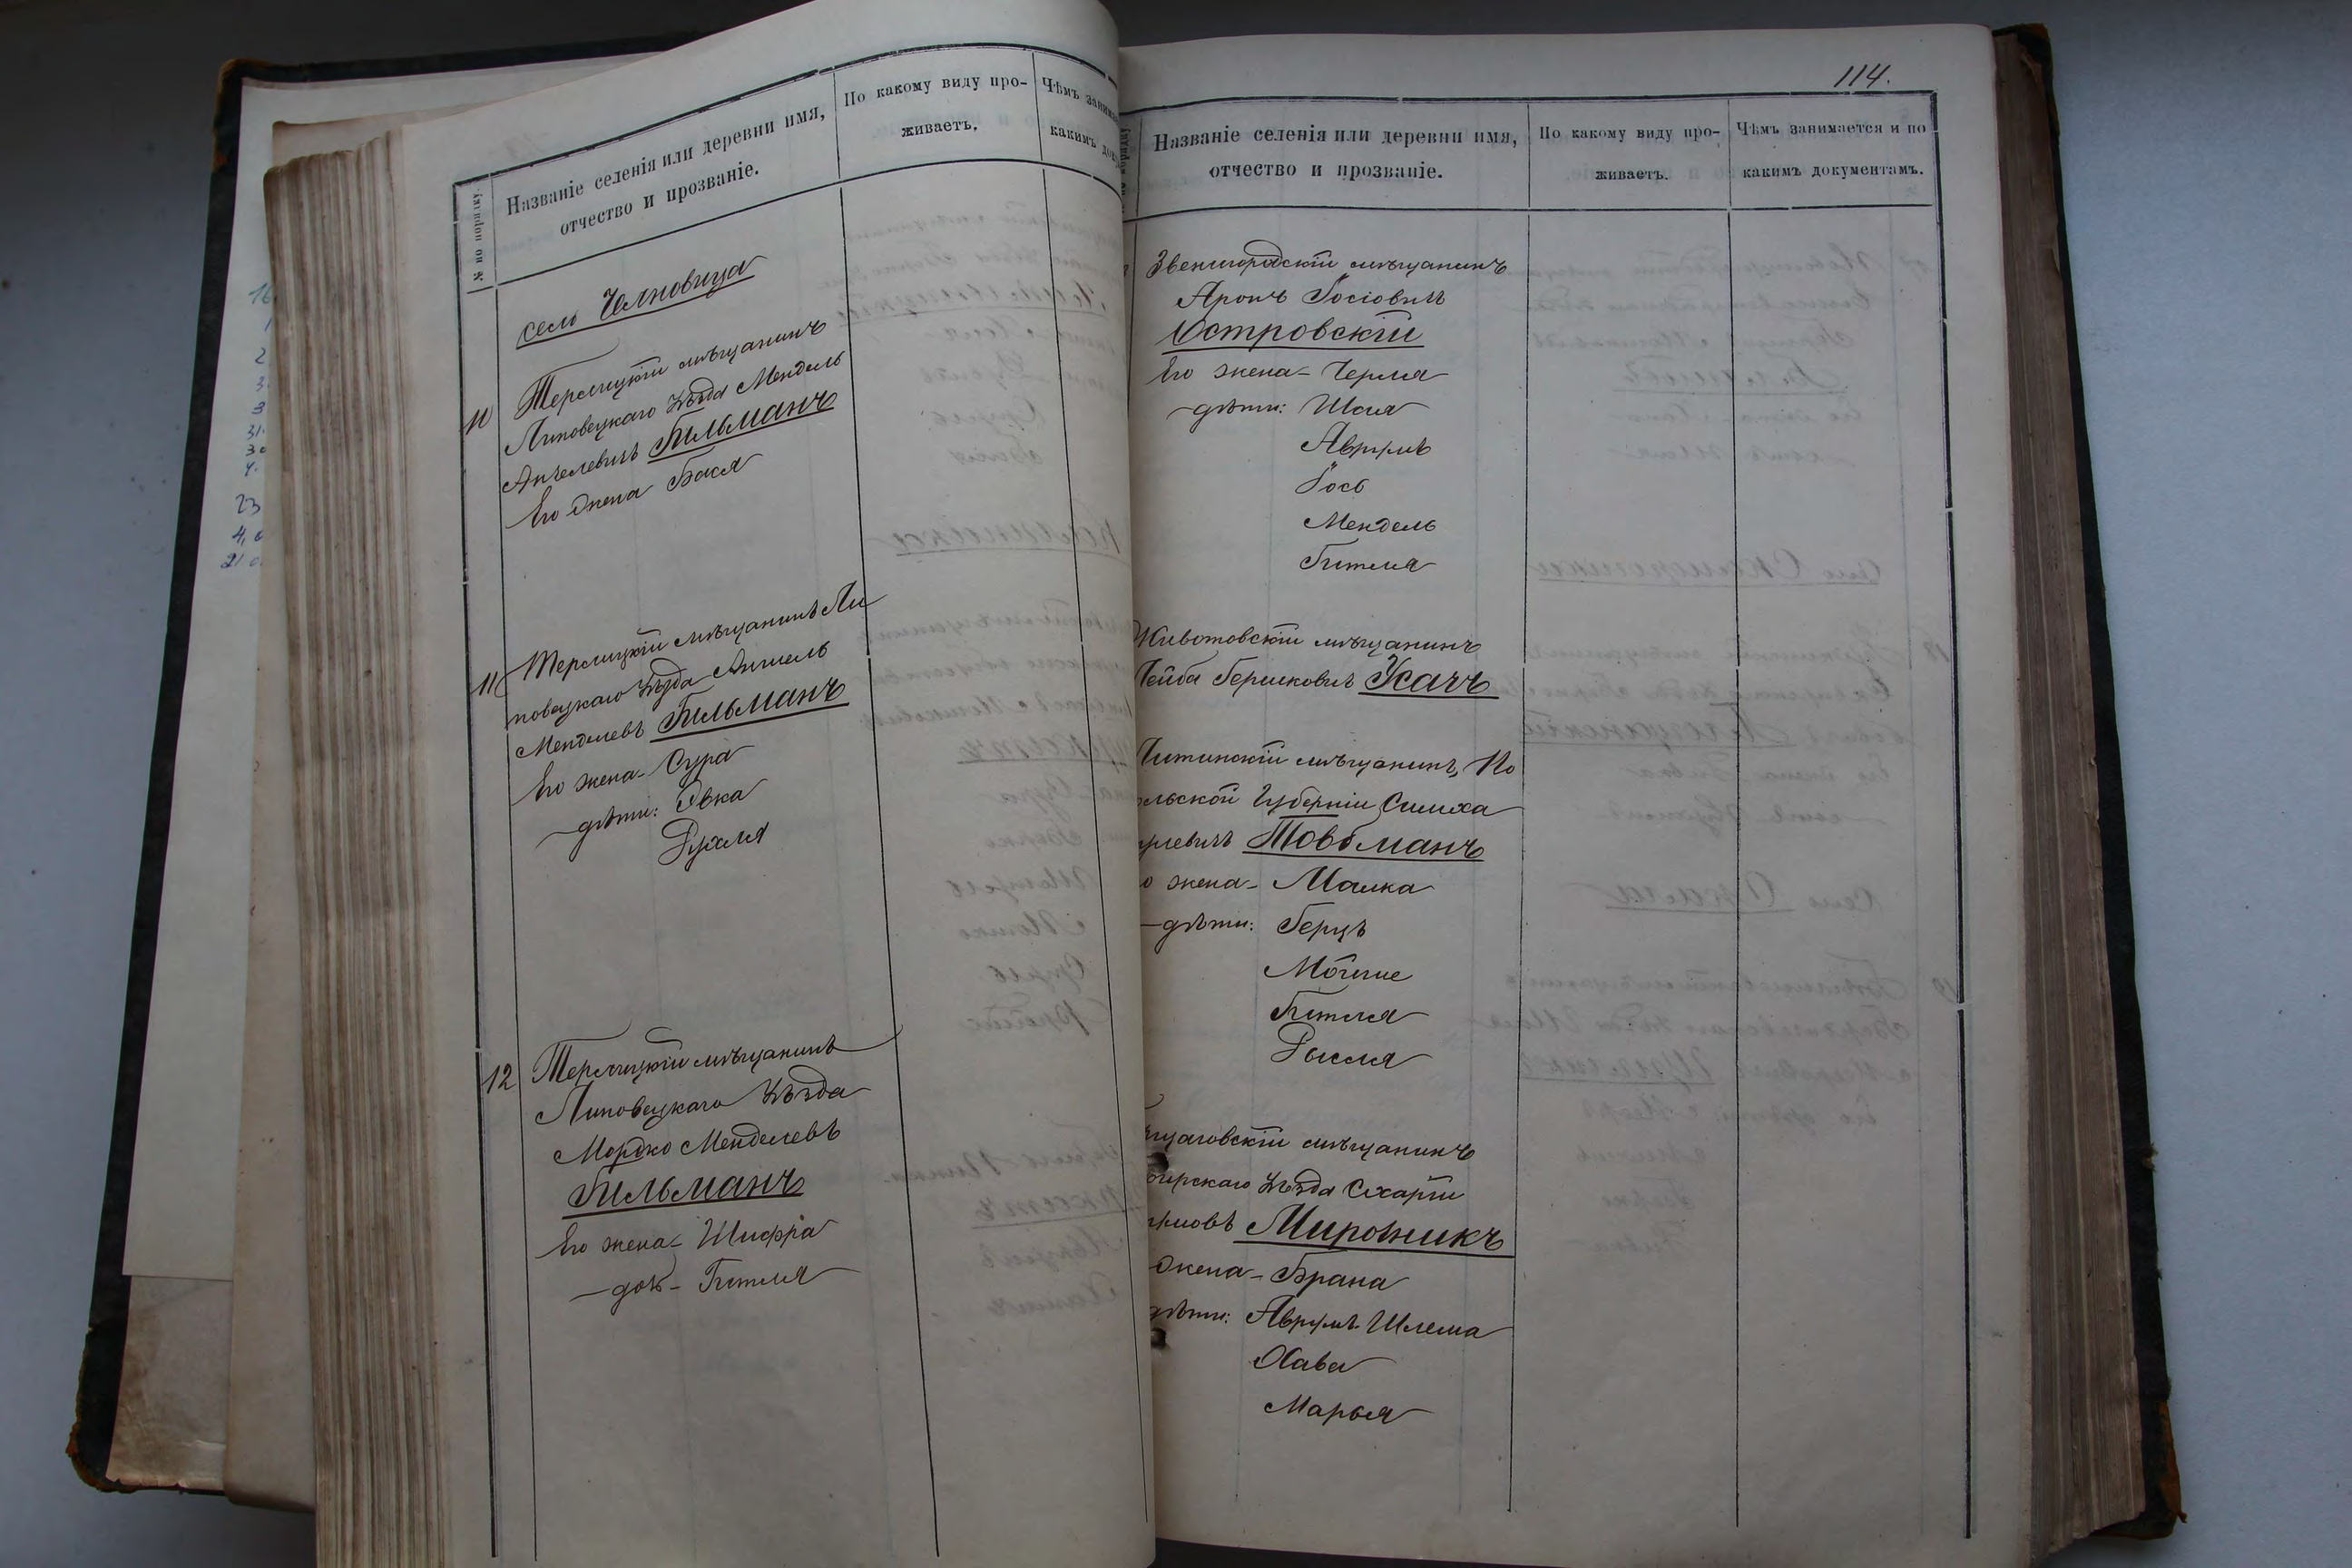 № по порядку.
Названіе селенія или деревни имя,
отчество и прозваніе.
По какому виду про-
живаетъ.
Чѣмъ
какимъ
село Челновица
10
Терлицкій мѣщанинъ
Липовецкаго уѣзда Мендель
Анчелевичъ Гильманъ
Его жена Бася
11
Терлицкій мѣщанинъ Ли
повецкаго уѣзда Анчель
Менделевъ Гильманъ
Его жена - Сура
дѣти:
Рухля
12
Терлицкій мѣщанинъ
Липовецкаго уѣзда
Мордко Менделевъ
Гильманъ
Его жена - Шифра
доч - Гитля
114.
Названіе селенія или деревни имя,
отчество и прозваніе.
По какому виду про-
живаетъ.
Чѣмъ занимается и по
какимъ документамъ.
Звенигородскій мѣщанинъ
Аронъ Іосіовичъ
Островскій
Его жена - Черля
дѣти: Шая
Аврумъ
Іось
Мендель
Гитля
Животовскій мѣщанинъ
Лейба Берковичъ Усачъ
Литинскій мѣщанинъ, По
ольской Губерніи Симха
Товбманъ
о жена - Малка
дѣти: Герцъ
Мойше
Гитля
Рысля
мѣщанинъ
уѣзда
Мирошникъ
жена - Брана
дѣти: Аврумъ-Шлема
Хава
Марья